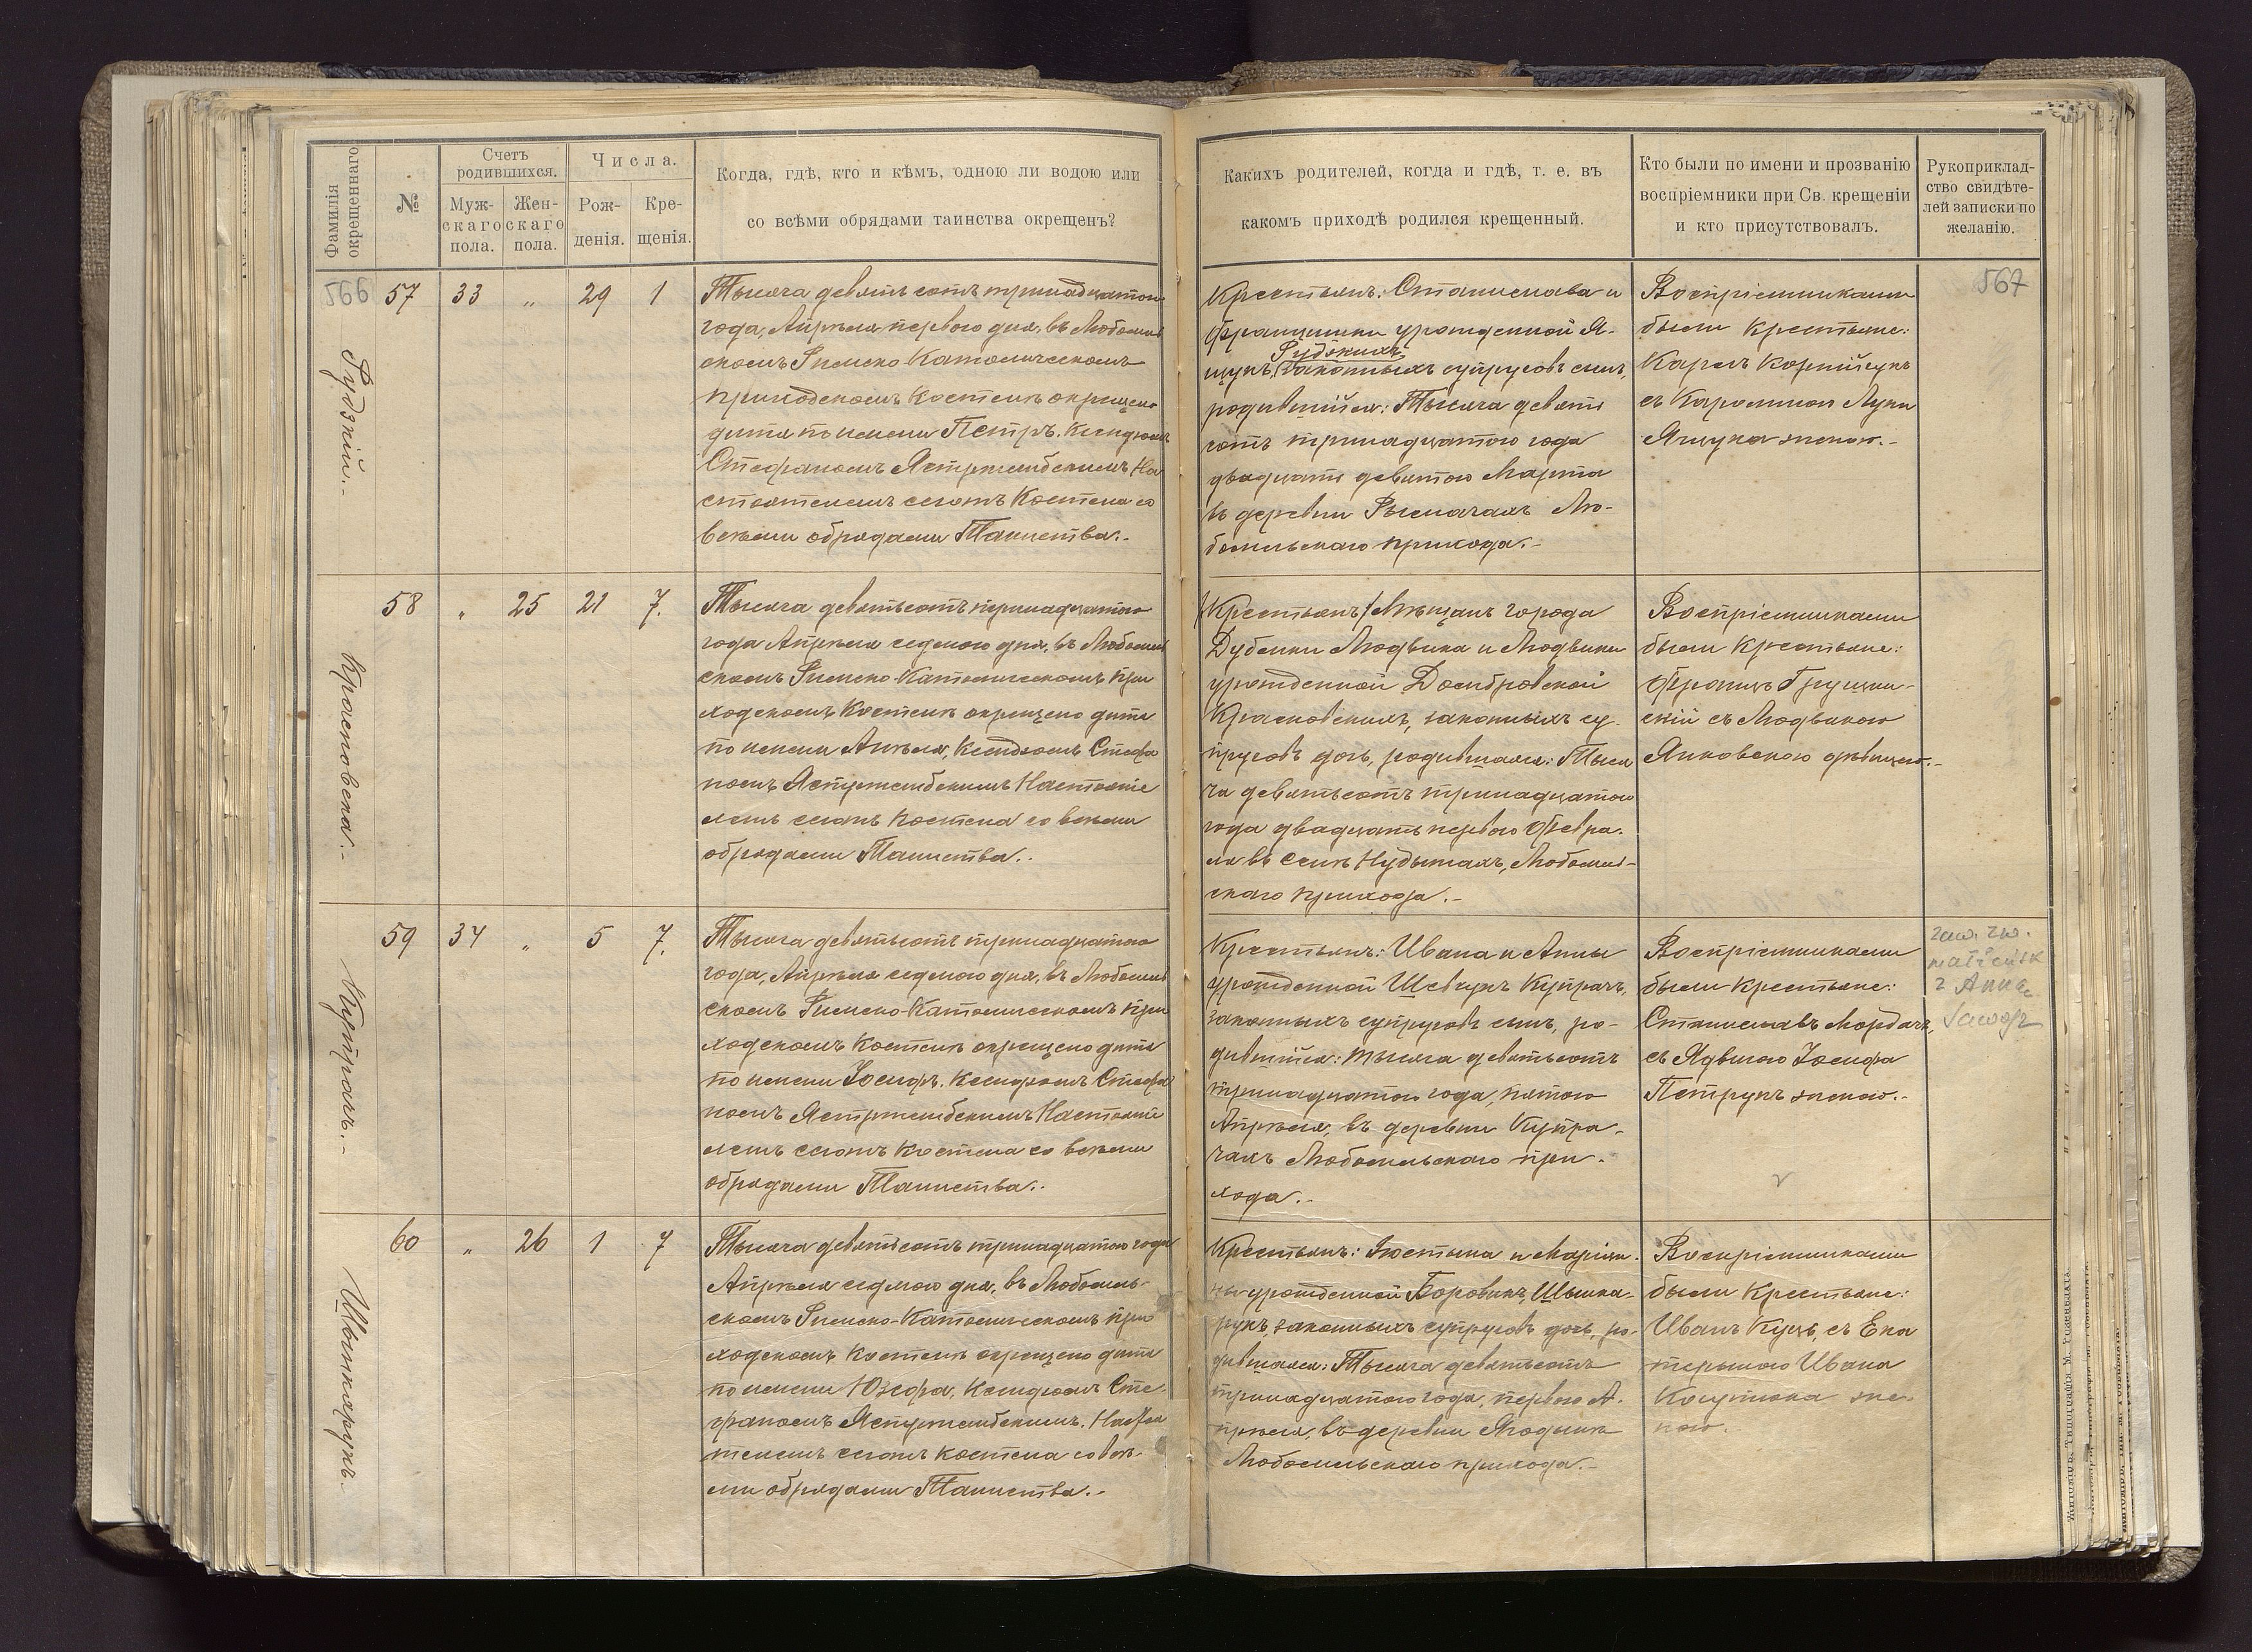 Фамилія окрещеннаго
№
Счетъ родившихся.
Мужскаго пола.
Женскаго пола.
Числа.
Рожденія.
Крещенія.
Когда, гдѣ, кто и кѣмъ, одною ли водою или
со всѣми обрядами таинства окрещенъ?
Какихъ родителей, когда и гдѣ, т. е. въ
какомъ приходѣ родился крещенный.
Кто были по имени и прозванію
воспріемники при Св. крещеніи
и кто присутствовалъ.
Рукоприклад-
ство свидѣте-
лей записки по
желанію.
566
567
Рудзкій.-
57 33 „ 29 1
Тысяча девятьсотъ тринадцатого
года, Апрѣля перваго дня, въ Любомль
скомъ Римско-Католическомъ
приходскомъ Костелѣ окрещено
дитя по имени Петръ. Ксендзомъ
Стефаномъ Ястржембскимъ На
стоятелемъ сегожъ Костела со
всѣми обрядами Таинства.-
Крестьянъ: Станислава и
Францишки урожденной Я-
Рудзкихъ
щукъ, законныхъ супруговъ сынъ,
родившійся: Тысяча девять
сотъ тринадцатого года
двадцать девятого Марта
въ деревни Рымачахъ Лю-
бомльскаго прихода.-
Воспріемниками
были Крестьяне:
Кароль Корнійчукъ
съ Каролиною Луки
Ящука женою.-
Красновска.-
58 „ 25 21 7.
Тысяча девятьсотъ тринадцатого
года Апрѣля седмого дня, въ Любомль
скомъ Римско-Католическомъ при
ходскомъ Костелѣ окрещено дитя
по имени Анѣля, Ксендзомъ Стефа
номъ Ястржембскимъ Настояте
лемъ сегожъ Костела со всѣми
обрядами Таинства.-
(Крестьянъ) Мѣщанъ города
Дубенки Людвика и Людвики
урожденной Домбровской
Красновскихъ, законныхъ су-
пруговъ дочь, родившаяся: Тыся
ча девятьсотъ тринадцатого
года двадцать перваго Февра-
ля въ селѣ Нудыжахъ, Любомль-
скаго прихода.-
Воспріемниками
были Крестьяне:
Францъ Грущин-
скій съ Людвикою
Янковскою дѣвицею.-
Купрачъ.-
59 34 „ 5 7.
Тысяча девятьсотъ тринадцатого
года, Апрѣля седмого дня, въ Любомль
скомъ Римско-Католическомъ при
ходскомъ Костелѣ окрещено дитя
по имени Іосифъ. Ксендзомъ Стефа
номъ Ястржембскимъ Настояте
лемъ сегожъ Костела со всѣми
обрядами Таинства.-
Крестьянъ: Ивана и Анны
урожденной Шевчукъ Купрачъ,
законныхъ супруговъ сынъ, ро-
дившійся: тысяча девятьсотъ
тринадцатого года, пятого
Апрѣля, въ деревни Купра-
чахъ Любомльскаго при-
хода.-
Воспріемниками
были Крестьяне:
Станиславъ Мордачъ,
съ Ядвигою Іосифа
Петрукъ женою.-
z Anną
Шванкарукъ.
60 „ 26 1 7
Тысяча девятьсотъ тринадцатого года
Апрѣля седмого дня, въ Любомль-
скомъ Римско-Католическомъ при
ходскомъ Костелѣ окрещено дитя
по имени Юзефа, Ксендзомъ Сте-
фаномъ Ястржембскимъ. Настоя
телемъ сегожъ Костела со всѣ-
ми обрядами Таинства.-
Крестьянъ: Іюстына и Маріан-
ны урожденной Боровикъ, Шванка-
рукъ, законныхъ супруговъ дочь, ро-
дившаяся: Тысяча девятьсотъ
тринадцатого года, перваго А-
прѣля, въ деревни Ягодинѣ
Любомльскаго прихода.-
Воспріемниками
были Крестьяне:
Иванъ Куцъ, съ Ека
териною Ивана
же-
ною.